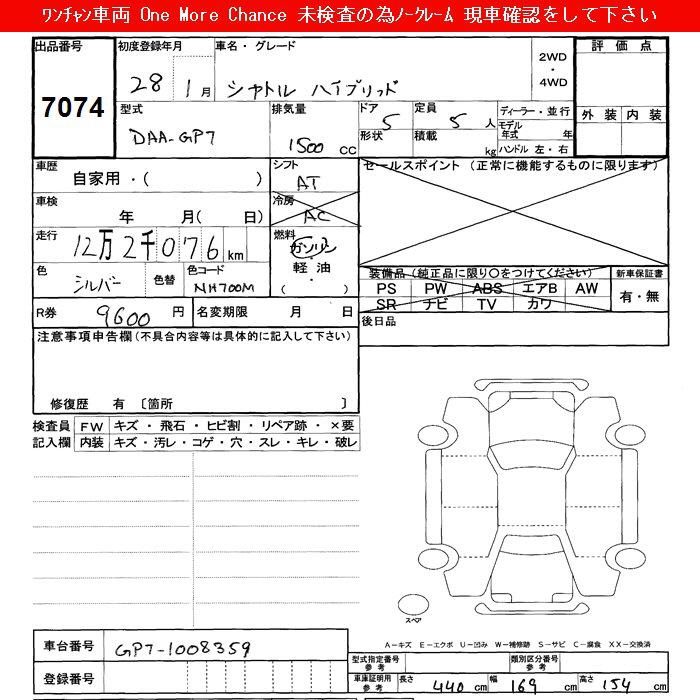 ﾜﾝﾁｬﾝ車両 One More Chance 未検査の為ﾉｰｸﾚｰﾑ 現車確認をして下さい
出品番号 初度登録年月 車名・グレード 評価点
7074 28 1月 シャトル ハイブリッド 2WD・4WD
外装 内装
型式 排気量 ドア 定員 ディーラー・並行
DAA-GP7 1500cc 5 5人 モデル年式 年
形状 積載 kg ハンドル 左・右
車歴 シフト セールスポイント (正常に機能するものに限ります)
自家用・( ) AT
車検 冷房
年 月( 日) AC
走行 燃料
12万2千076km ガソリン・軽油・( )
色 色替 色コード 装備品 (純正品に限り○をつけてください) 新車保証書
シルバー NH700M PS PW ABS エアB AW 有・無
SR ナビ TV カワ
R券 9600円 名変期限 月 日 後日品
注意事項申告欄 (不具合内容等は具体的に記入して下さい)
修復歴 有 〔箇所 〕
検査員 FW キズ・飛石・ヒビ割・リペア跡・×要
記入欄 内装 キズ・汚レ・コゲ・穴・スレ・キレ・破レ
スペア
A－キズ E－エクボ U－凹み W－補修跡 S－サビ C－腐食 XX－交換済
車台番号 GP7-1008359
型式指定番号 参考 類別区分番号 参考
登録番号 車庫証明用 参考 長さ 440cm 幅 169cm 高さ 154cm